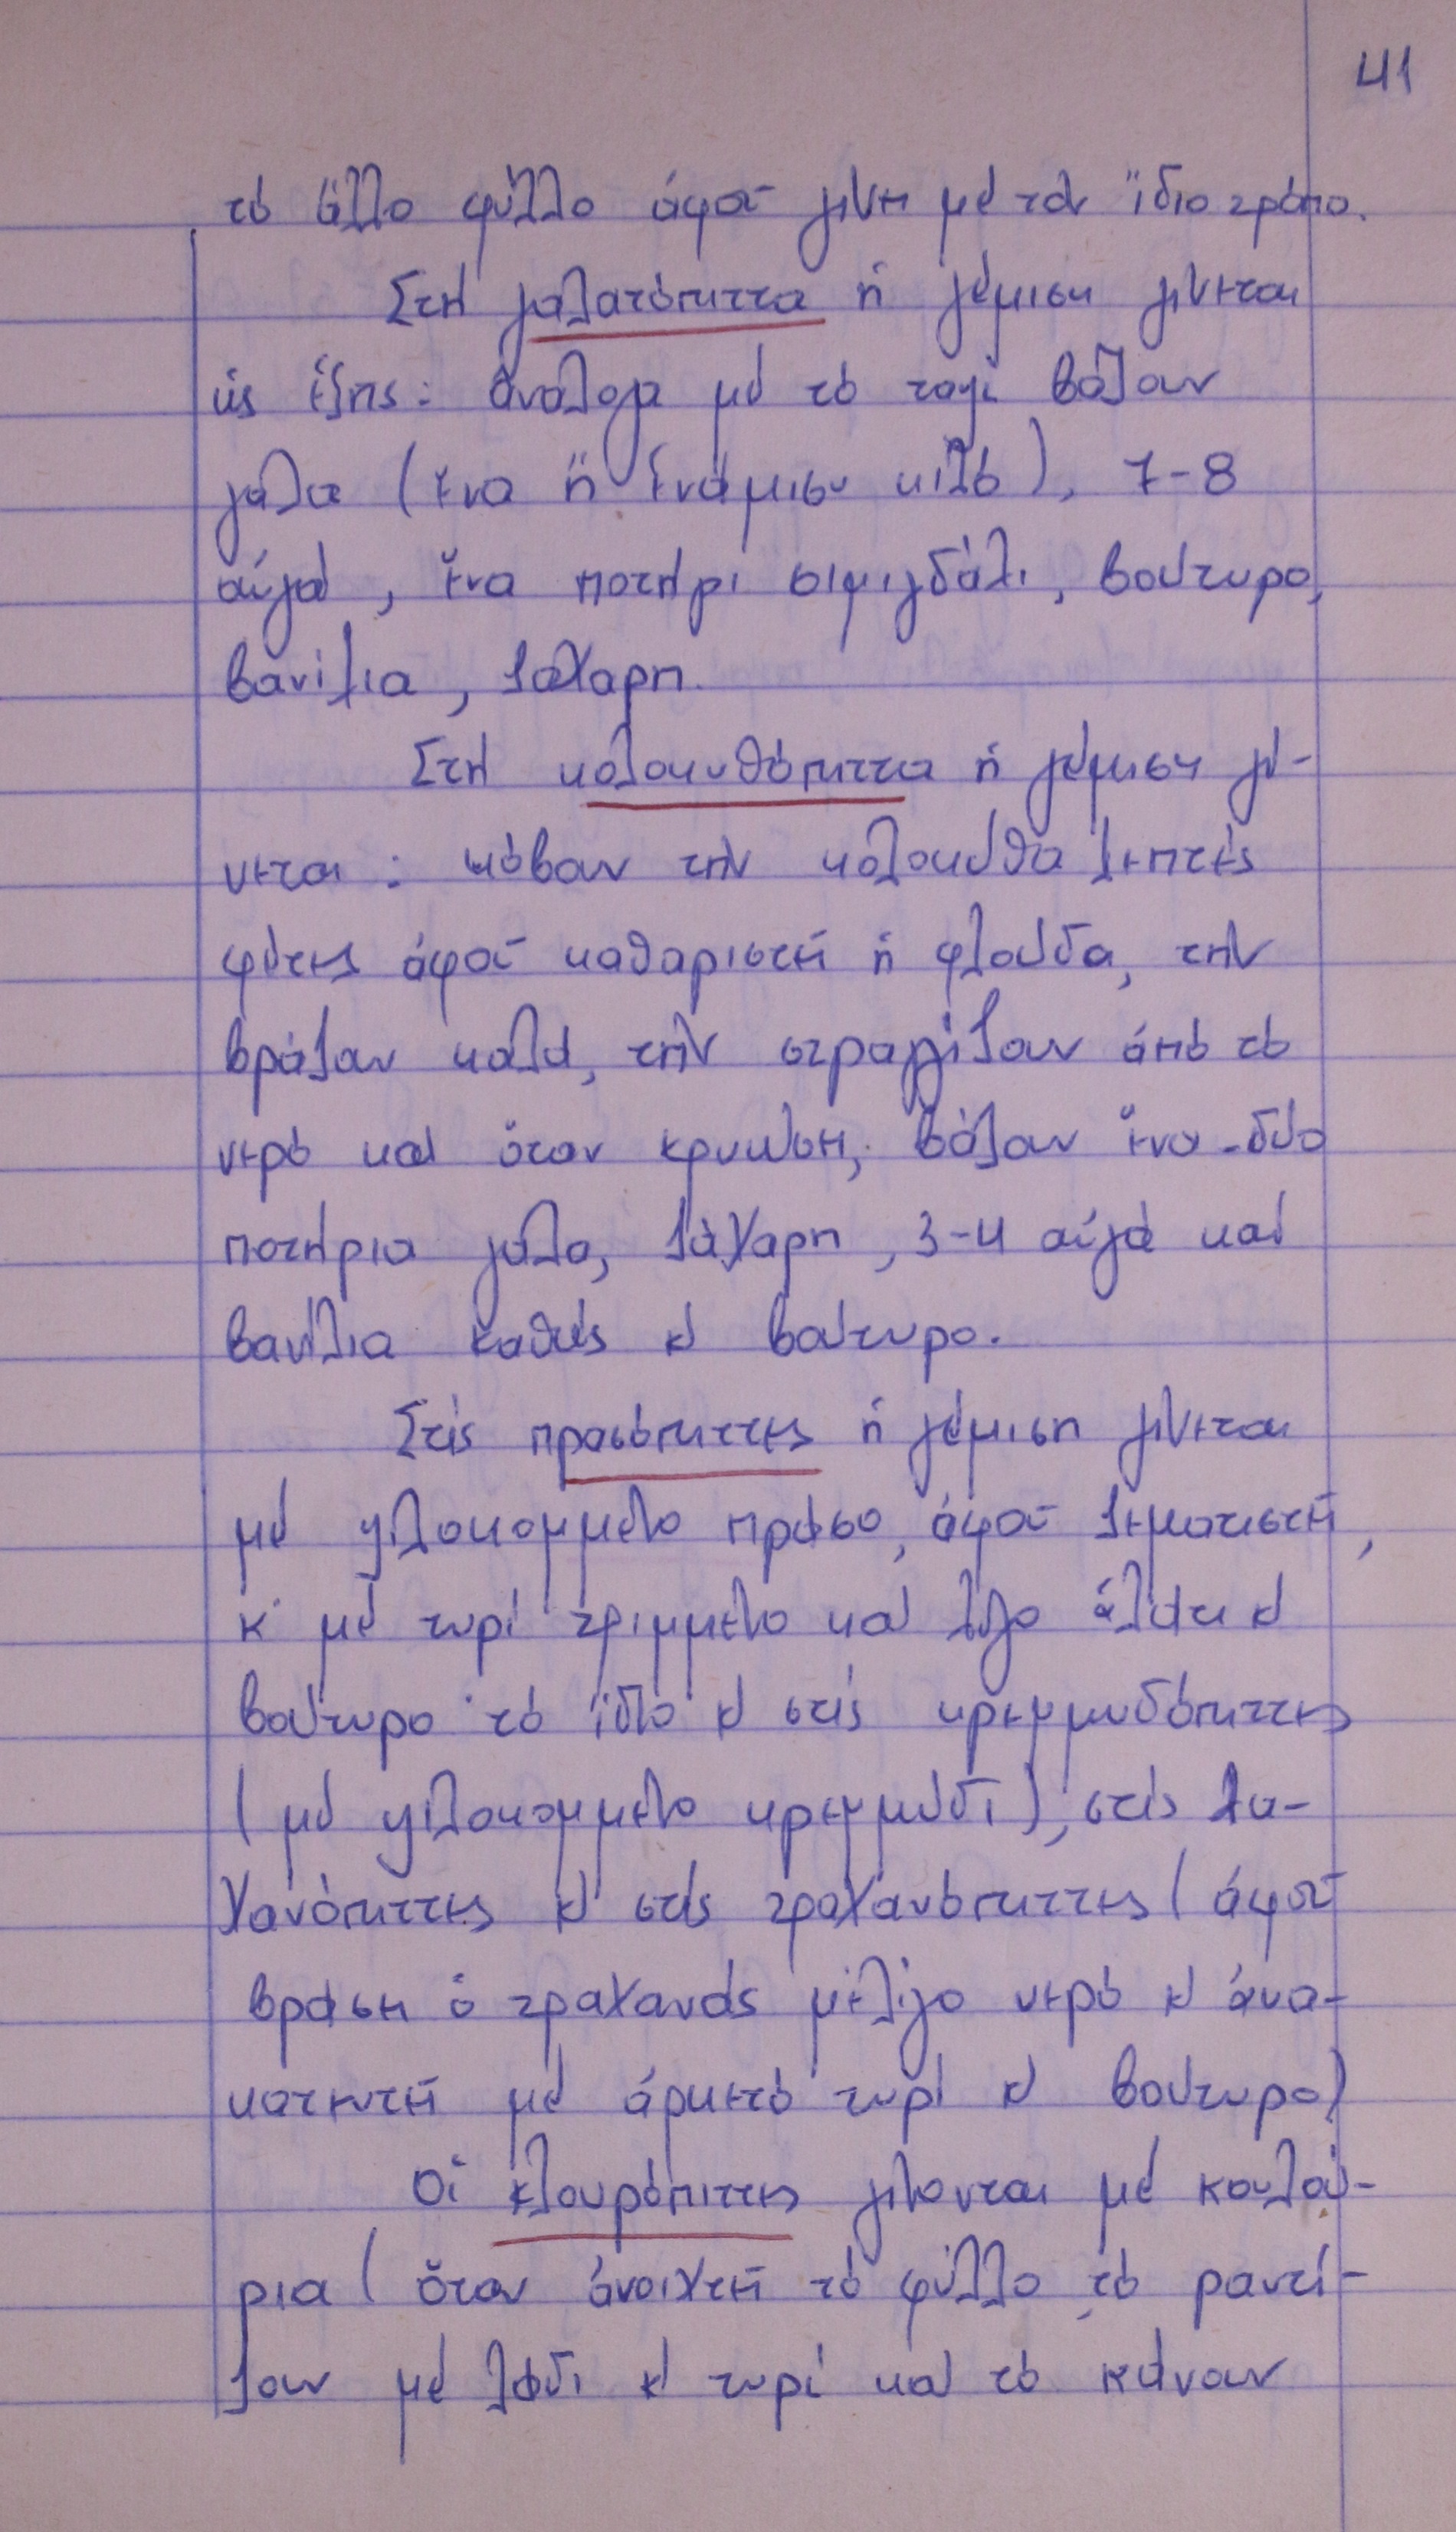 41
τό ἄλλο φύλλο ἀφοῦ γίνη μέ τόν ἴδιο τρόπο.
Στή γαλατόπιττα ἡ γέμιση γίνεται
ὡς ἑξῆς: ἀνάλογα μέ τό ταψί βάζουν
γάλα (ἕνα ἤ ἑνάμισυ κιλό), 7-8
αὐγά, ἕνα ποτήρι σιμιγδάλι, βούτυρο,
βανίλια, ζάχαρη.
Στή κολοκυθόπιττα ἡ γέμιση γί-
νεται: κόβουν τήν κολοκύθα λεπτές
φέτες ἀφοῦ καθαριστῆ ἡ φλούδα, τήν
βράζουν καλά, τήν στραγγίζουν ἀπό τό
νερό καί ὅταν κρυώση, βάζουν ἕνα-δύο
ποτήρια γάλα, ζάχαρη, 3-4 αὐγά καί
βανίλια καθώς κ' βούτυρο.
Στίς πρασόπιττες ἡ γέμιση γίνεται
μέ ψιλοκομμένο πράσο, ἀφοῦ ζεματιστῆ,
κ' μέ τυρί τριμμένο καί λίγο ἁλάτι κ'
βούτυρο· τό ἴδιο κ' στίς κρεμμυδόπιττες
(μέ ψιλοκομμένο κρεμμύδι), στίς λα-
χανόπιττες κ' στίς τραχανόπιττες (ἀφοῦ
βράση ὁ τραχανάς μέ λίγο νερό κ' ἀνα-
κατευτῆ μέ ἀρκετό τυρί κ' βούτυρο)
Οἱ κλουρόπιττες γίνονται μέ κουλού-
ρια (ὅταν ἀνοιχτῆ τό φύλλο, τό ραντί-
ζουν μέ λάδι κ' τυρί καί τό κάνουν